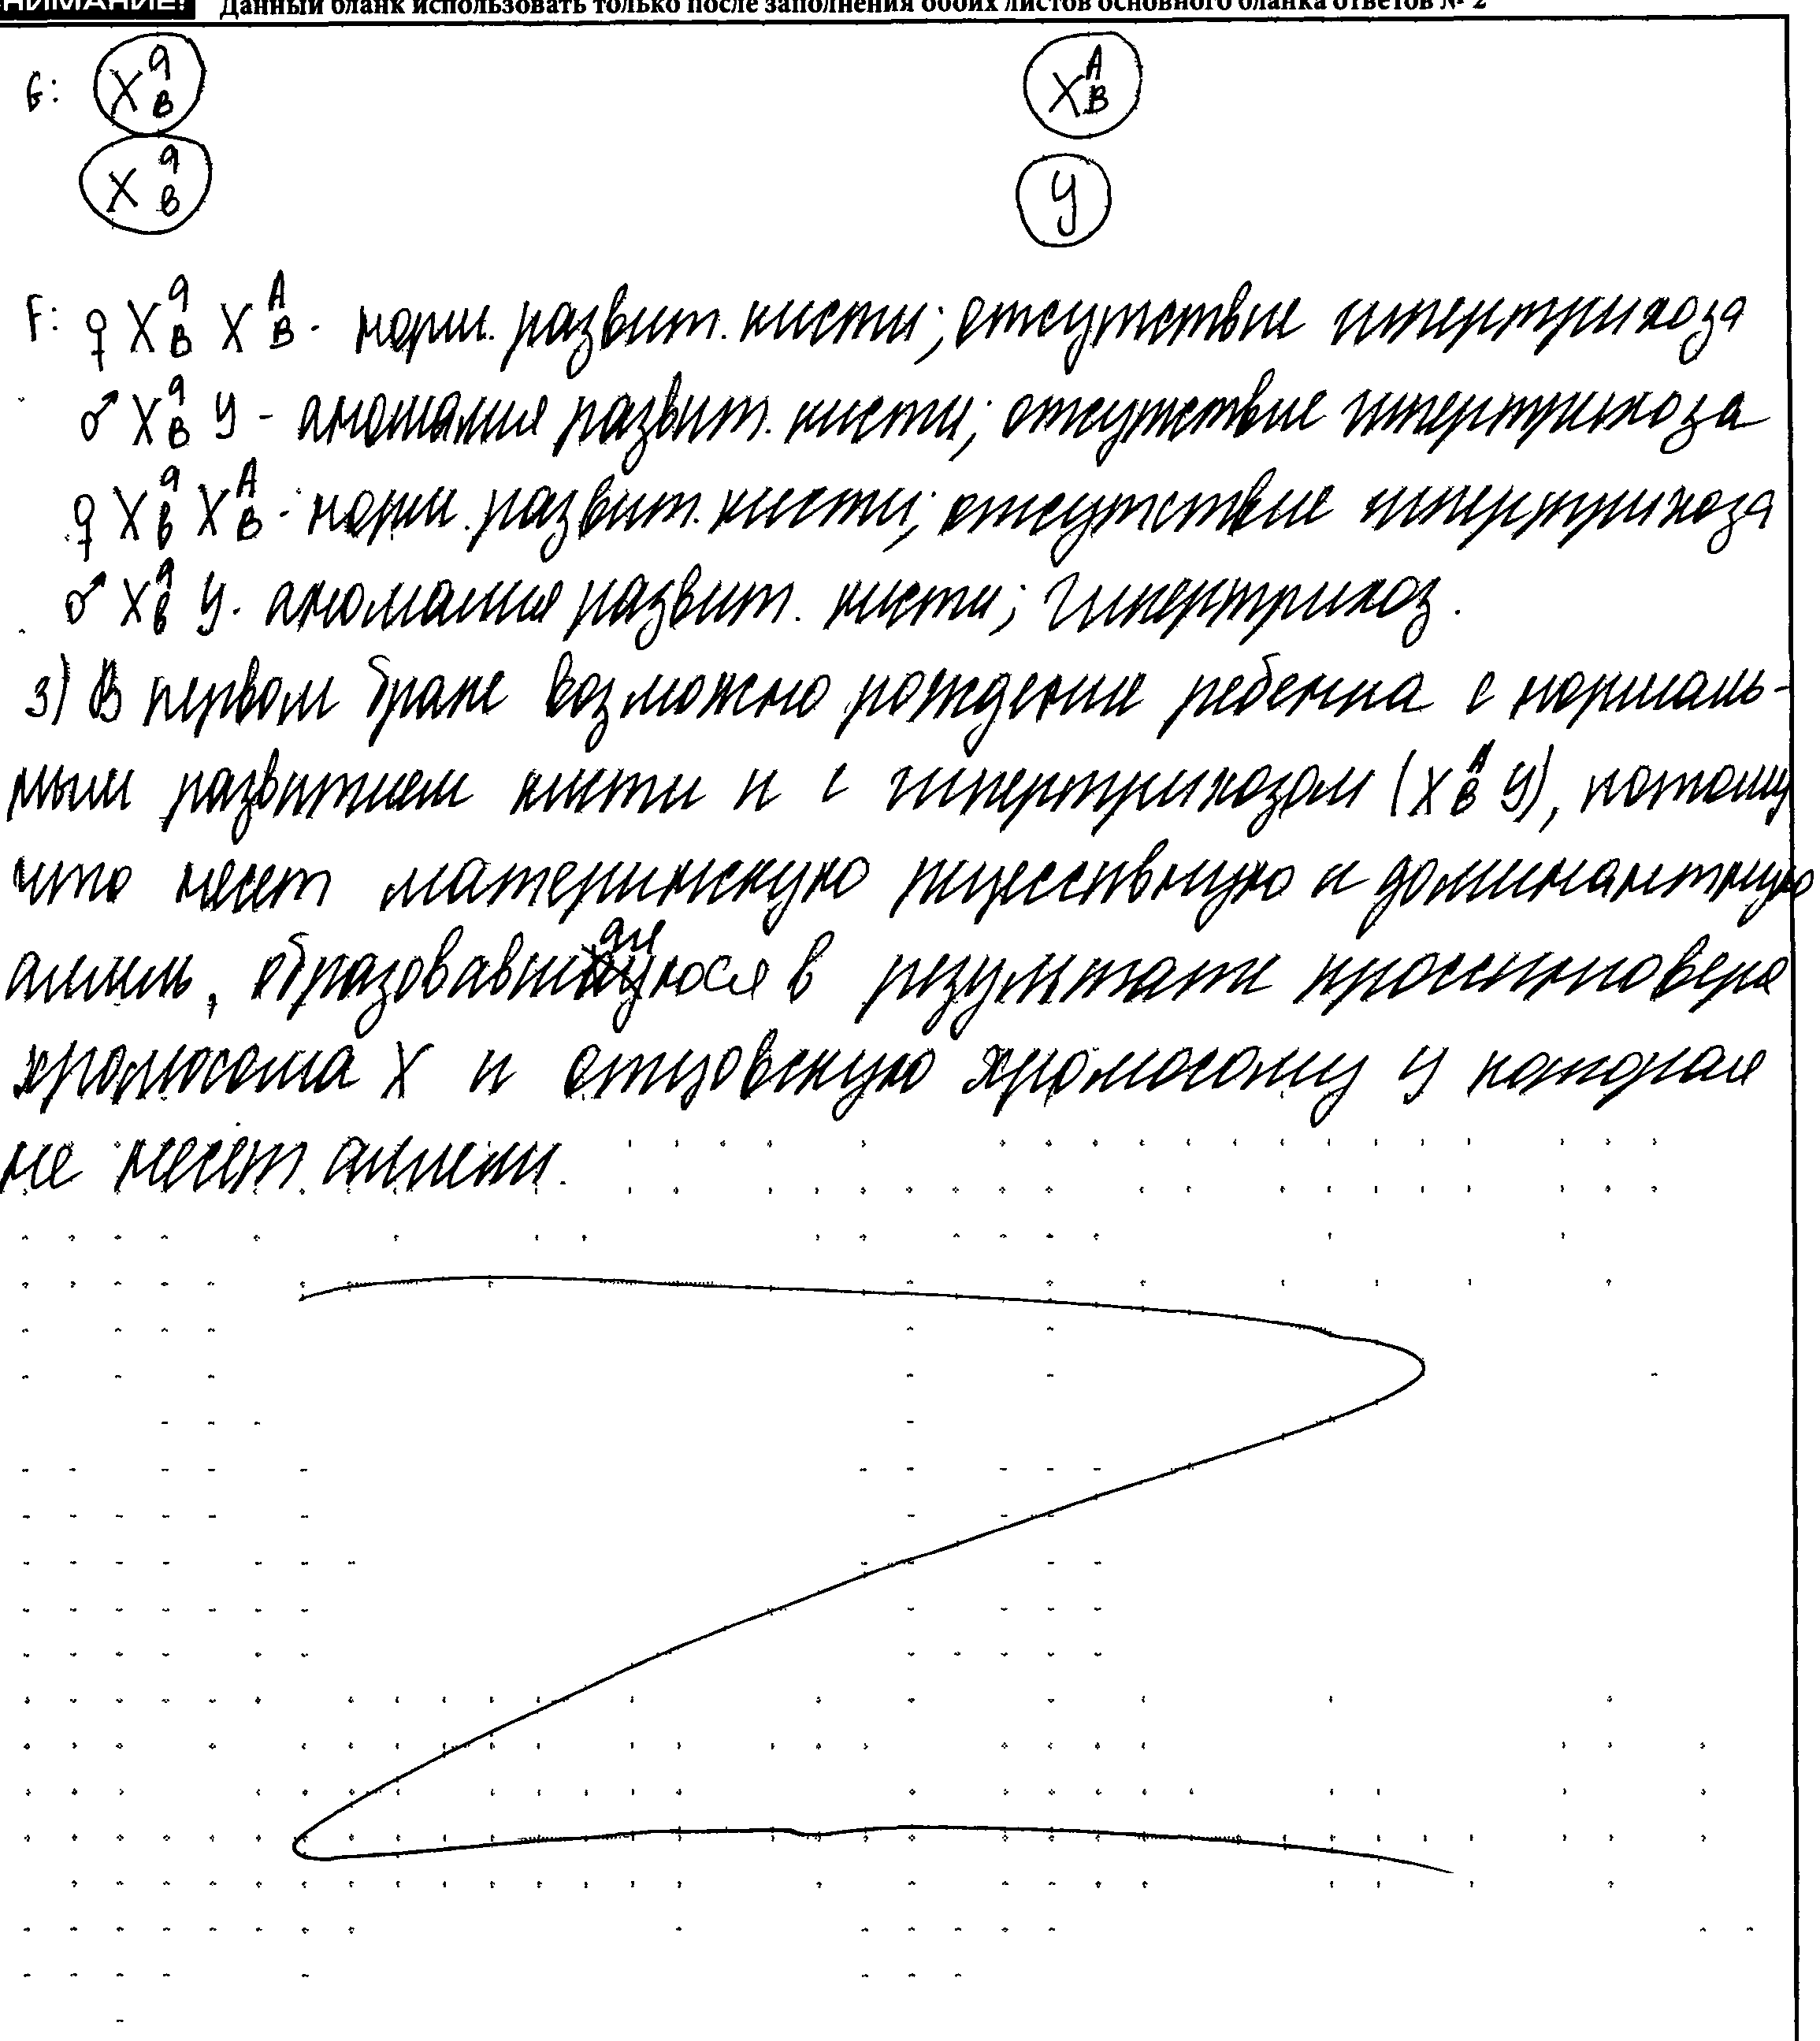 ВНИМАНИЕ! Данный бланк использовать только после заполнения обоих листов основного бланка ответов № 2
G: X a B X A B
X a в У
F: ♀ X a B X A B - норм. развит. кисти; отсутствие гипертрихоза
♂ X a B У - аномалия развит. кисти; отсутствие гипертрихоза
♀ X a в X A B - норм. развит. кисти; отсутствие гипертрихоза
♂ X a в У - аномалия развит. кисти; гипертрихоз.
3) В первом браке возможно рождение ребенка с нормаль-
ным развитием кисти и с гипертрихозом (X A в У), потому
что несет материнскую рецессивную и доминантную
аллель, в результате кроссинговера
хромосома X и отцовскую хромосому У которая
не несет аллели.